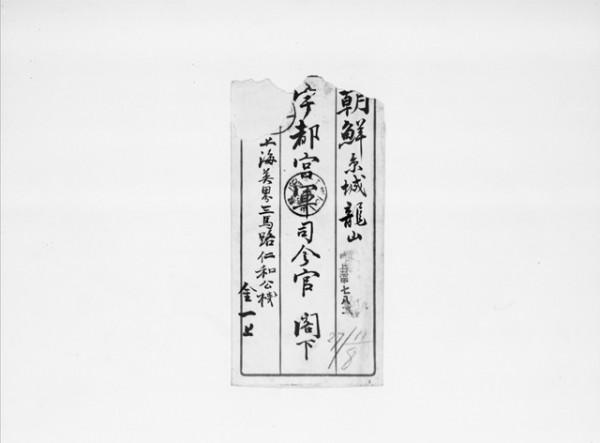 朝鮮京城龍山
宇都宮軍司令官 閣下
上海英界三馬路仁和公棧
金一上
27/11
8